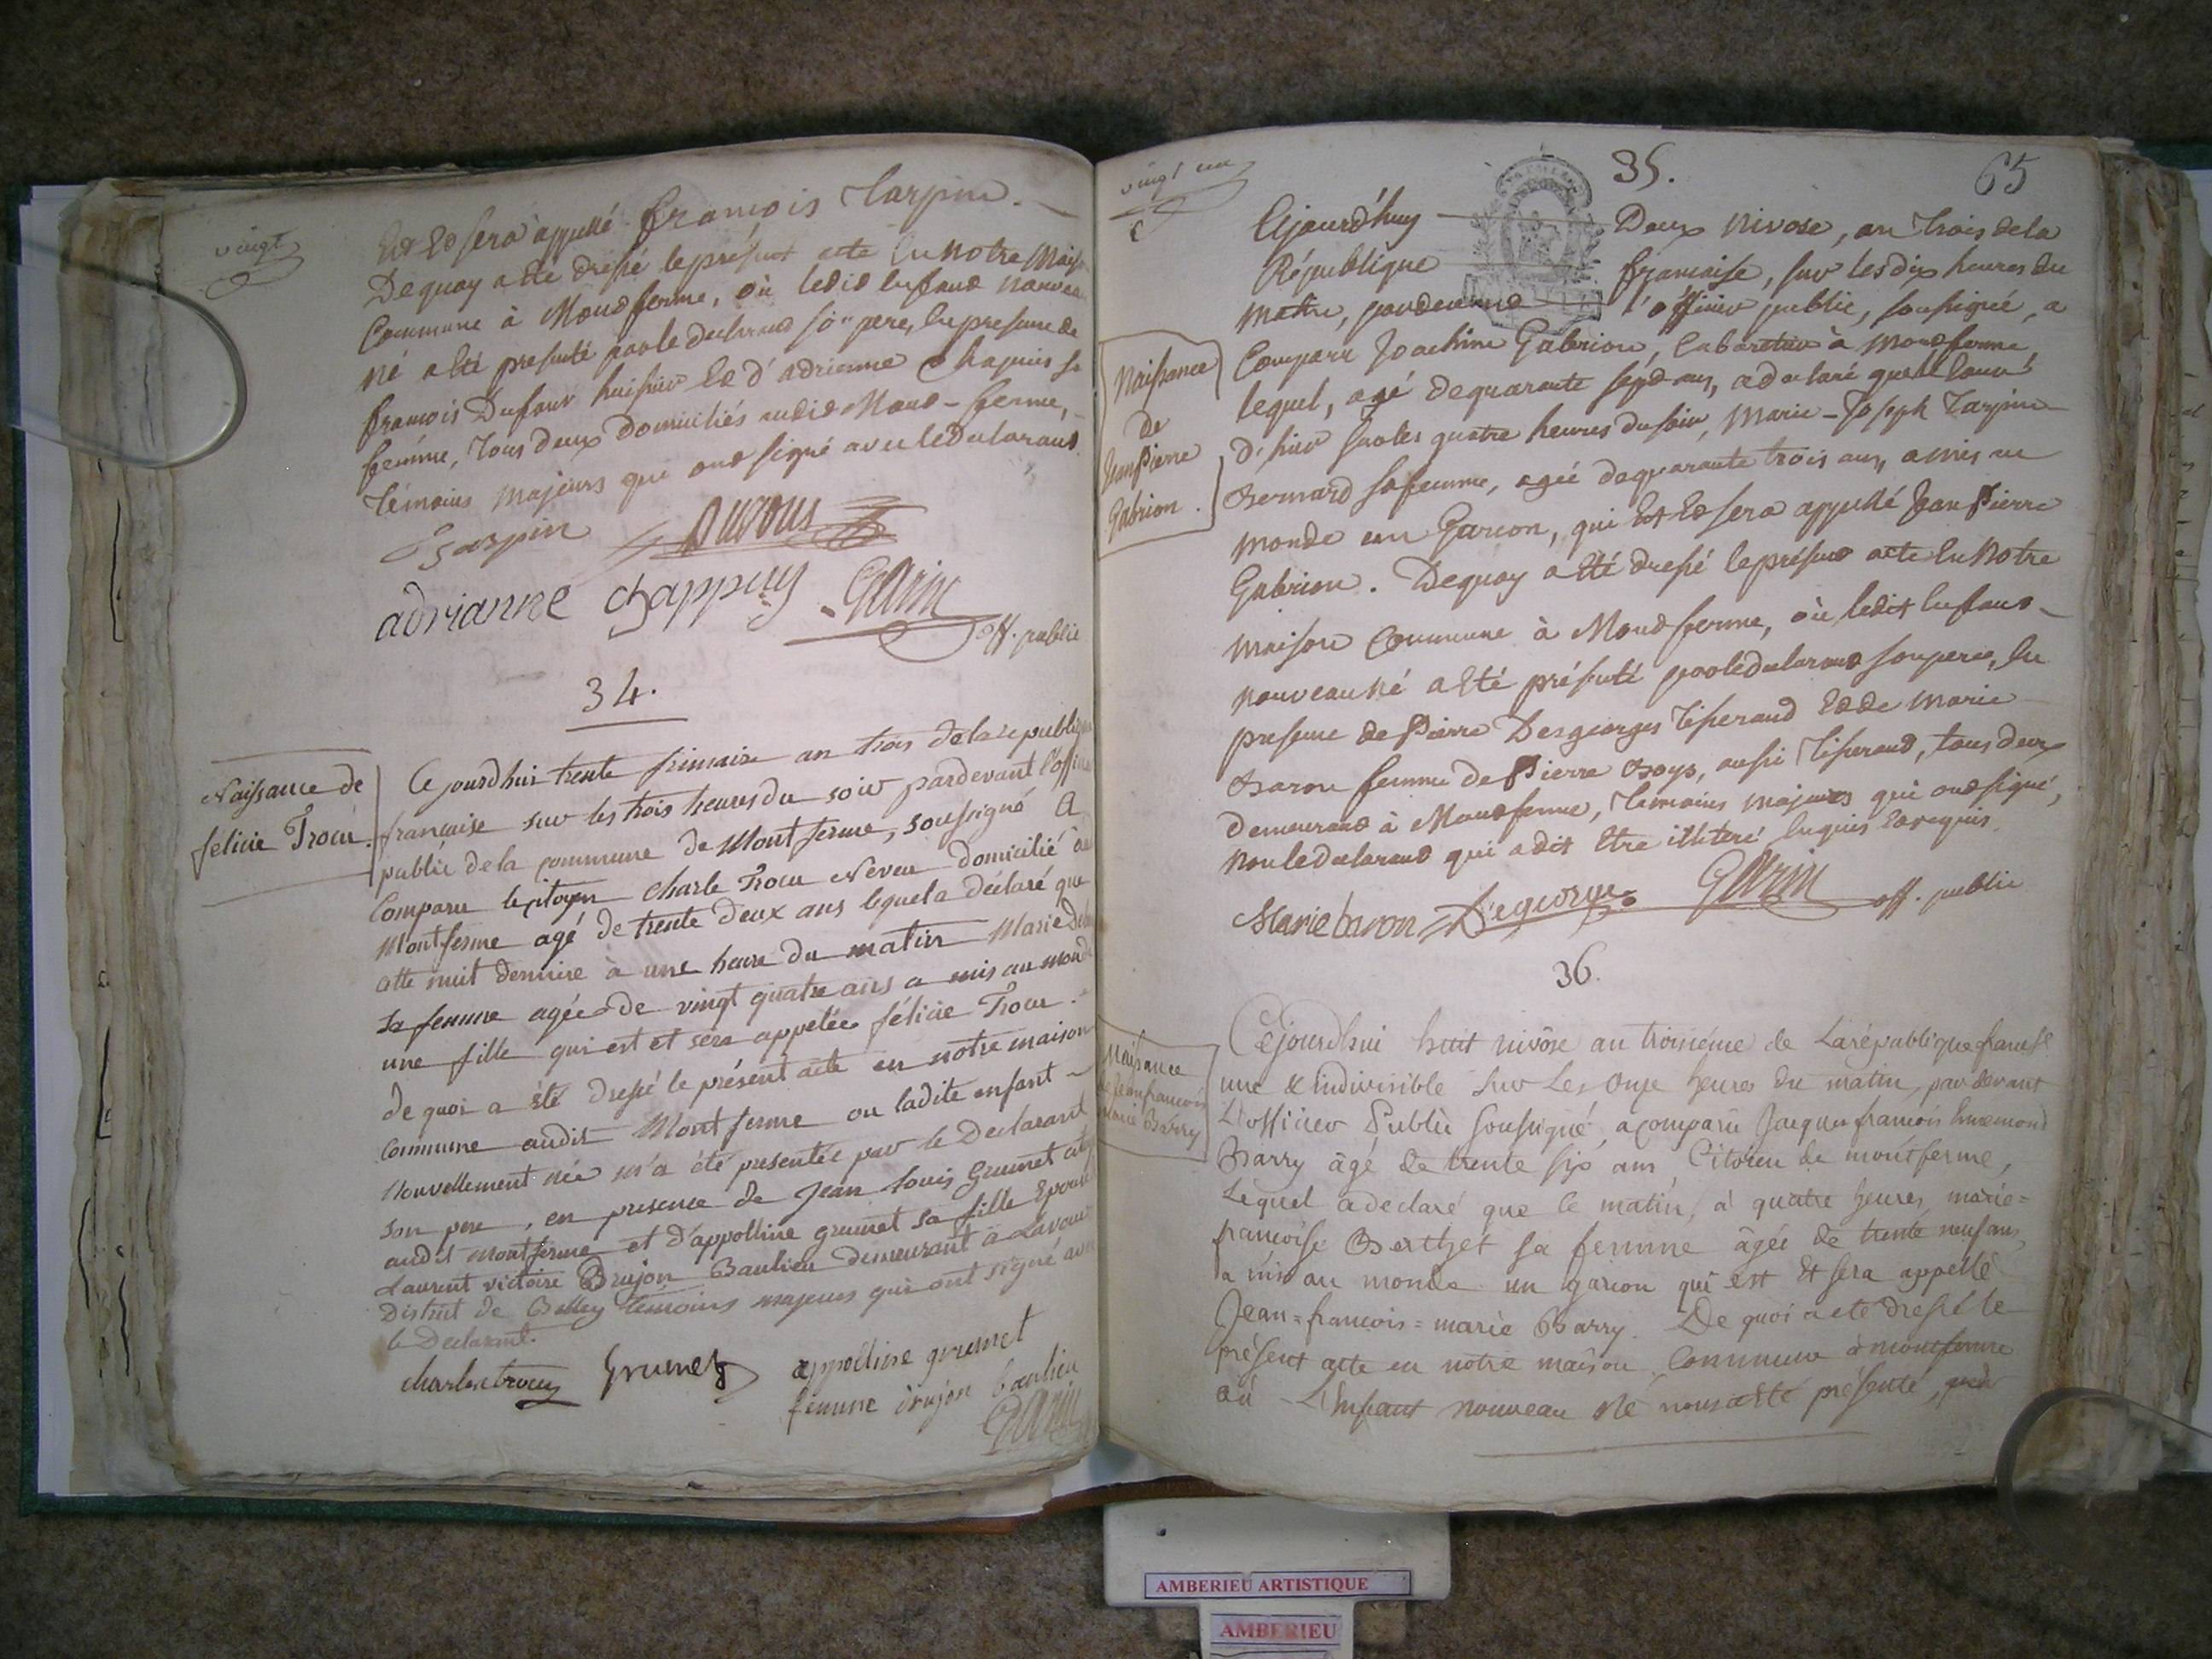 vingt
Est Et sera appellé François Tarpin.
Dequoy a été dressé le présent acte En Notre Maison
Commune à Montferme, où ledit Enfant nouveau
Né a Eté présenté par le declarant son pere, En presence de
François Dufour huissier Et d'adrienne Chapuis sa
femme, Tous deux Domiciliés audit Mont-ferme,
Témoins Majeurs qui ont signé avec le Declarant.
Tarpin
adrianne Chappuy Garin
off. public
34.
Naissance de
félicie Trocu.
Ce jourdhui trente frimaire an trois de la republique
francaise sur les trois heures du soir pardevant l'officier
public de la commune de Montferme, soussigné A
Comparu le citoyen Charle Trocu Neveu domicilié au
Montferme agé de trente deux ans lequel a déclaré que
cette nuit derniere à une heure du matin Marie
sa femme agée de vingt quatre ans a mis au monde
une fille qui est et sera appelée félicie Trocu.
de quoi a été dressé le présent acte en notre maison
Commune audit Montferme ou ladite enfant
Nouvellement née m'a été presentée par le Declarant
son pere, en presence de Jean Louis Grumet
audit montferme et d'appolline grumet sa fille Epouse
Laurent victoire Brujon Baulieu demeurant a Lavour
District de Belley témoins majeurs qui ont signé avec
le Declarant.
charle trocu Grumet appolline grumet
femme brujon baulieu
Garin
vingt un
35.
65
Naissance
de
Jean Pierre
Gabrion.
Ajourd'huy Deux Nivose, an Trois de la
République française, sur les dix heures du
matin, pardevant l'officier public, soussigné, a
Comparu Joachim Gabrion, Cabaretier à Montferme,
lequel, agé de quarante sept ans, a declaré que le jour
d'hier sur les quatre heures du soir, Marie-Joseph Tarpin
Bernard sa femme, agée de quarante trois ans, a mis au
monde un Garcon, qui Est Et sera appellé Jean Pierre
Gabrion. Dequoy a Eté dressé le présent acte En Notre
Maison Commune à Montferme, où ledit Enfant
nouveau Né a Eté présenté par le declarant son pere, En
presence de Pierre Desgeorges Tisserand Et de Marie
Baron femme de Pierre Boys, aussi Tisserand, tous deux
demeurant à Montferme, Témoins majeurs qui ont signé,
Non le declarant qui a dit Etre illiteré Enquis Et requis.
Marie baron Degeorge Garin off. public
36.
Naissance
de Jean francois
Marie Barry
Cejourdhui huit nivôse an troisiéme de La république francse
une & indivisible sur Les onze heures du matin, pardevant
L'officier Public soussigné, a comparû Jacques francois
Barry âgé de trente six ans Citoien de montferme,
Lequel a declaré que ce matin, à quatre heures, marie=
francoise Berthet sa femme âgée de trente neuf ans,
a mis au monde un garcon qui est Et sera appellé
Jean=francois=marie Barry. De quoi a eté dressé le
présent acte en notre maison Commune à montferme
où L'Enfant nouveau Né nous a Eté présenté, par
AMBERIEU ARTISTIQUE
AMBERIEU